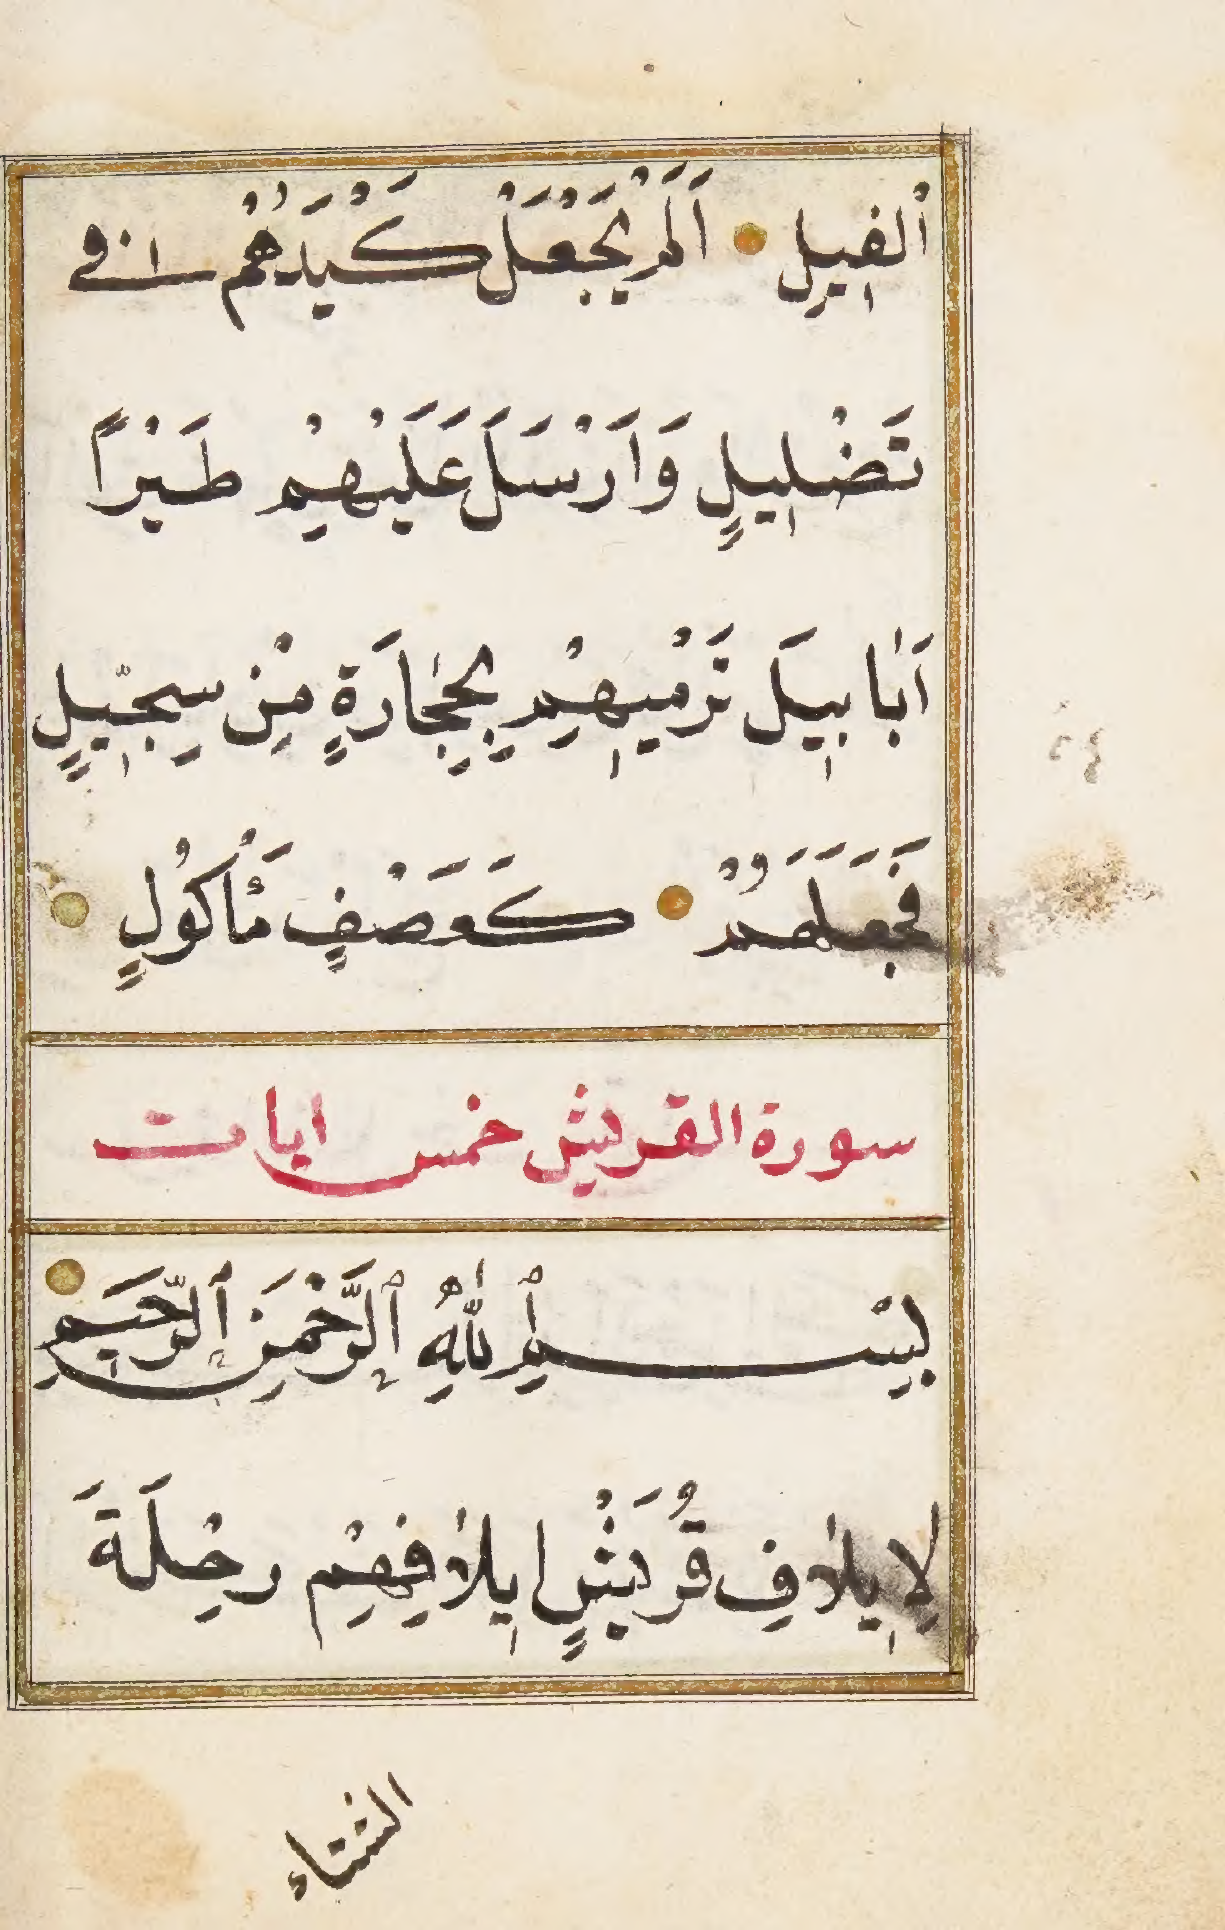 الْفِيلِ اَلَمْ يَجْعَلْ كَيْدَهُمْ فِي
تَضْلِيلٍ وَاَرْسَلَ عَلَيْهِمْ طَيْرًا
اَبَابِيلَ تَرْمِيهِمْ بِحِجَارَةٍ مِنْ سِجِّيلٍ
فَجَعَلَهُمْ كَعَصْفٍ مَأْكُولٍ
سورة القريش خمس ايات
بِسْمِ ٱللّٰهِ ٱلرَّحْمَنِ ٱلرَّحِيمِ
لِاِيلَافِ قُرَيْشٍ اِيلَافِهِمْ رِحْلَةَ
الشتاء